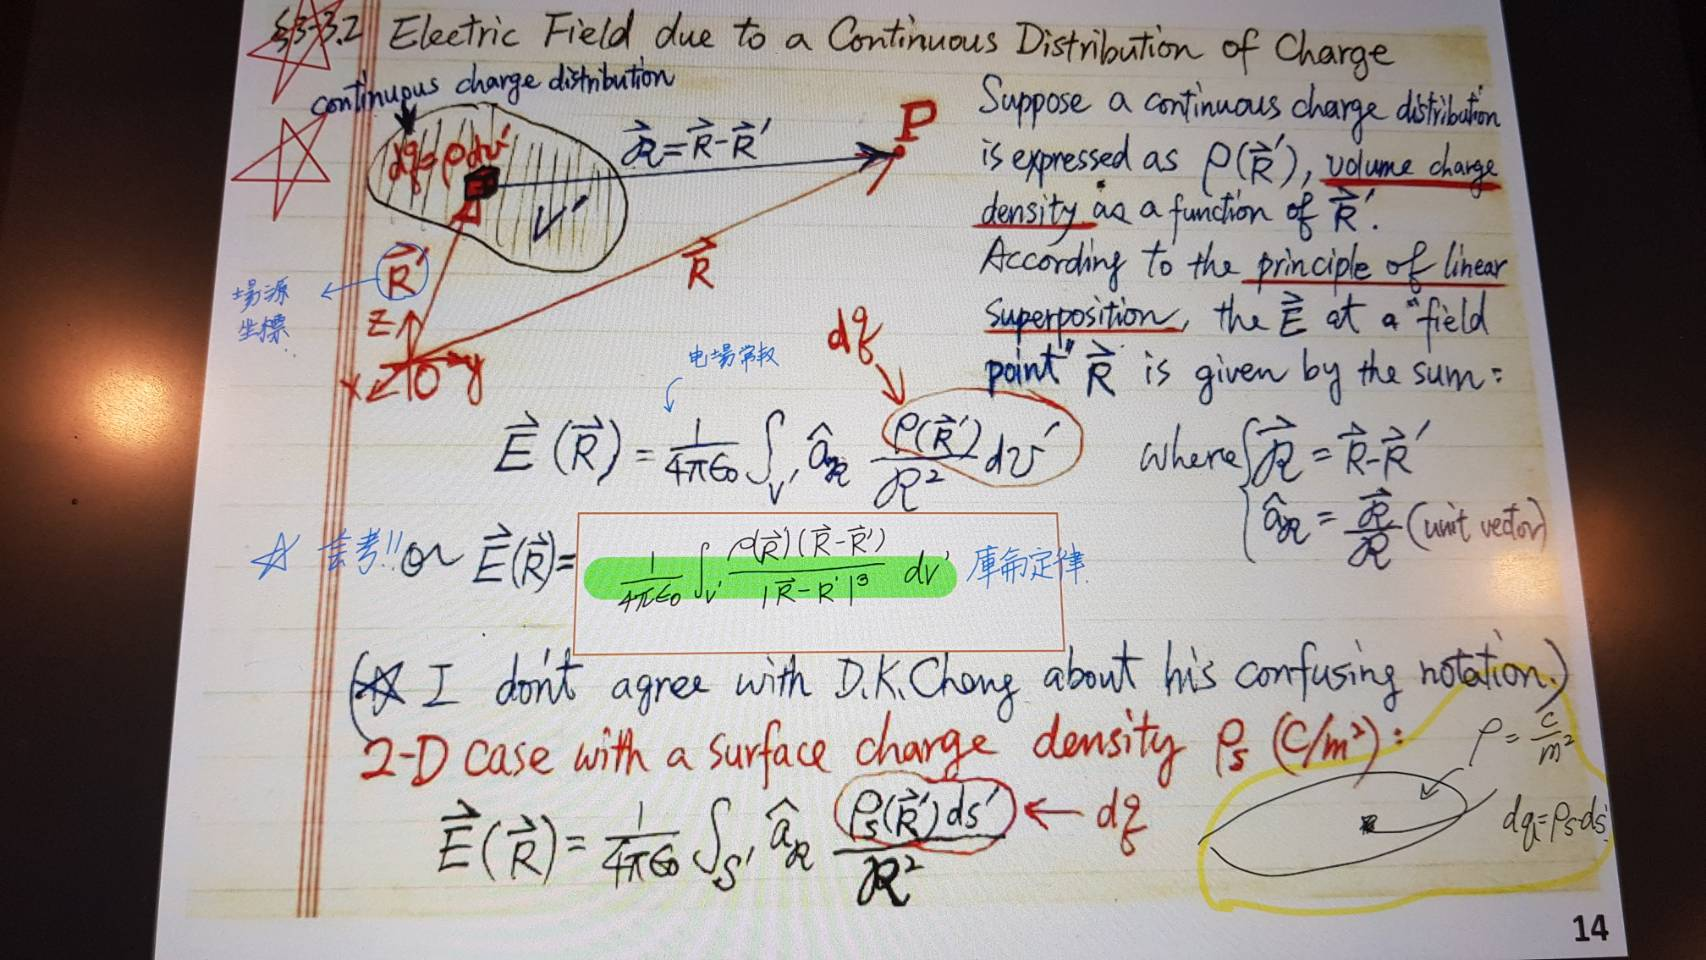 §3-3.2 Electric Field due to a Continuous Distribution of Charge
continuous charge distribution
dq=ρdv'
V'
𝓡⃗=R⃗-R⃗'
P
R⃗'
R⃗
場源
坐標
Z
X
O
y
Suppose a continuous charge distribution
is expressed as ρ(R⃗'), volume charge
density as a function of R⃗'.
According to the principle of linear
superposition, the E⃗ at a "field
point" R⃗ is given by the sum:
电場常数
dq
E⃗(R⃗) = 1/4πϵ₀ ∫V' â𝓡 ρ(R⃗')/𝓡² dv'
where { 𝓡⃗ = R⃗-R⃗'
â𝓡 = 𝓡⃗/𝓡 (unit vector)
☆ 会考!! or E⃗(R⃗)= 1/4πϵ₀ ∫V' ρ(R⃗')(R⃗-R⃗')/|R⃗-R'|³ dv' 庫侖定律
(☆ I don't agree with D.K.Cheng about his confusing notation.)
2-D case with a surface charge density ρs (C/m²):
ρ = C/m²
E⃗(R⃗) = 1/4πϵ₀ ∫S' â𝓡 ρs(R⃗')ds'/𝓡² ← dq
dq=ρs·ds'
14